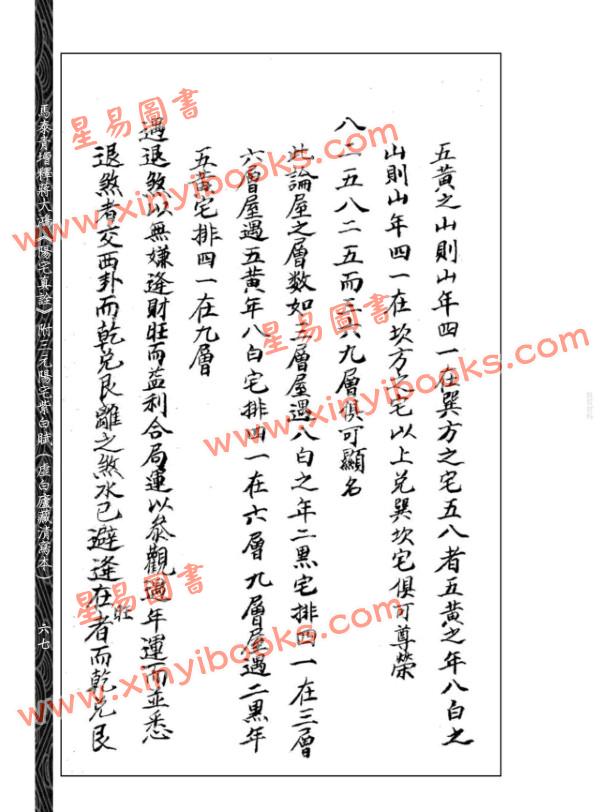 五黃之山則山年四一在巽方之宅五八者五黃之年八白之
山則山年四一在坎方宅以上兌巽坎宅俱可尊榮
八二五八二五而三六九層俱可顯名
此論屋之層数如三層屋遇八白之年二黑宅排四一在三層
六層屋遇五黃年八白宅排四一在六層九層屋遇二黑年
五黃宅排四一在九層
遇退煞以無嫌逢財旺而益利合局運以參觀過年運而並悉
退煞者交西卦而乾兌艮離之煞水已避逢旺在者而乾兌艮
馬泰青增釋蔣大鴻《陽宅真詮》附三元陽宅紫白賦（虛白廬藏清寫本）
六七
星易圖書
www.xinyibooks.com
星易圖書
www.xinyibooks.com
星易圖書
www.xinyibooks.com